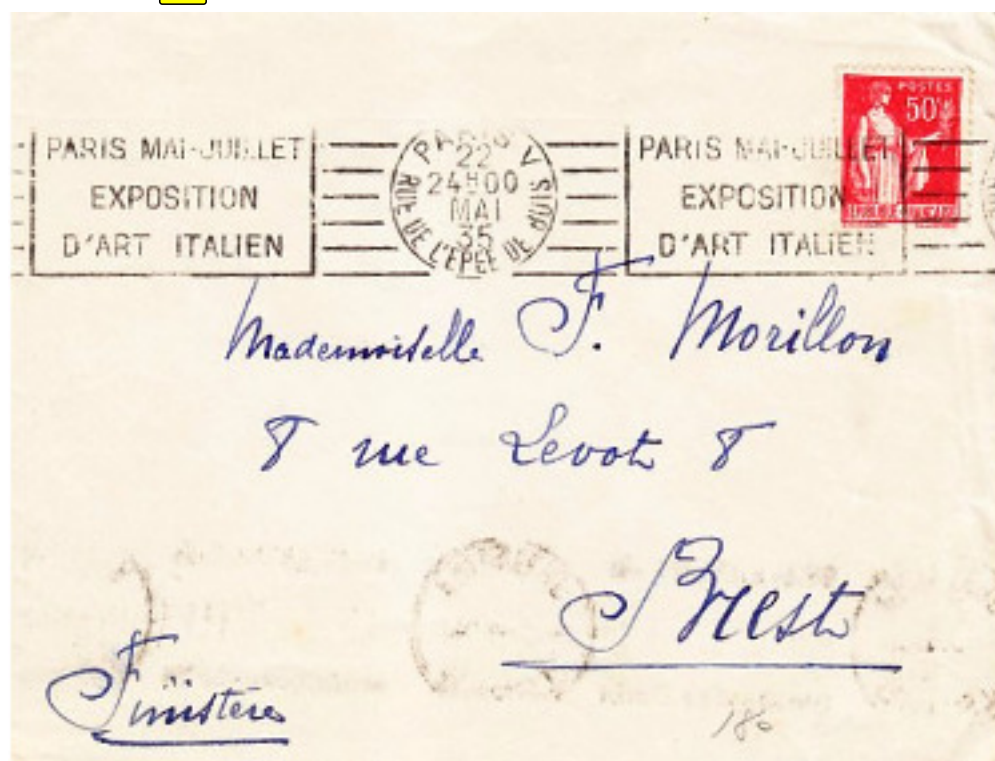 POSTES
50c
PARIS MAI-JUILLET
EXPOSITION
D'ART ITALIEN
PARIS V
22
24H00
MAI
35
RUE DE L'EPEE DE BOIS
PARIS MAI-JUILLET
EXPOSITION
D'ART ITALIEN
REPUBLIQUE FRANCAISE
Mademoiselle F. Morillon
8 rue Levot 8
Brest
Finistère
180